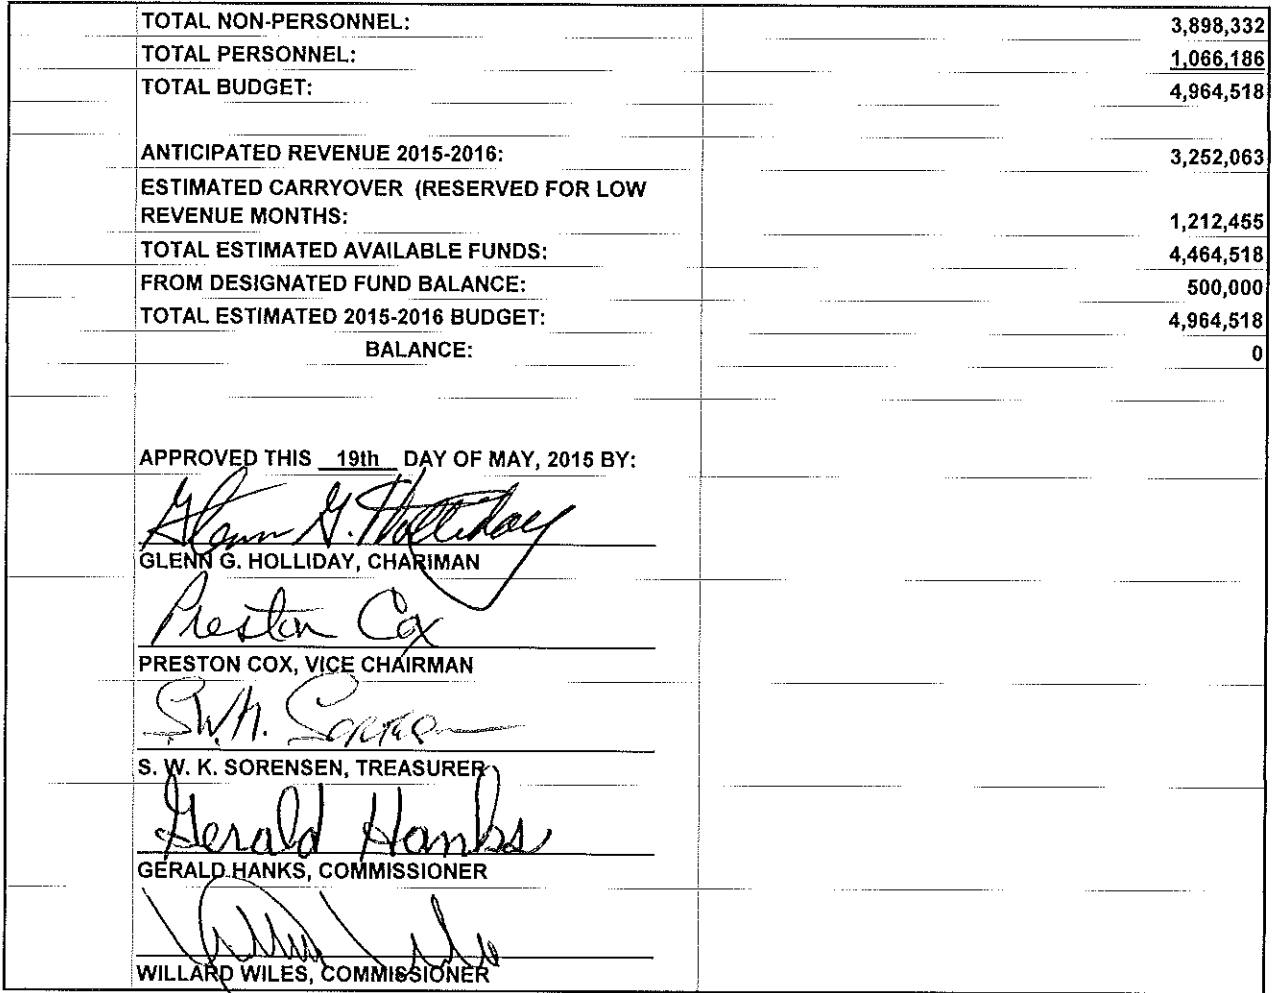 TOTAL NON-PERSONNEL: 3,898,332
TOTAL PERSONNEL: 1,066,186
TOTAL BUDGET: 4,964,518
ANTICIPATED REVENUE 2015-2016: 3,252,063
ESTIMATED CARRYOVER (RESERVED FOR LOW
REVENUE MONTHS: 1,212,455
TOTAL ESTIMATED AVAILABLE FUNDS: 4,464,518
FROM DESIGNATED FUND BALANCE: 500,000
TOTAL ESTIMATED 2015-2016 BUDGET: 4,964,518
BALANCE: 0
APPROVED THIS 19th DAY OF MAY, 2015 BY:
Glenn G. Holliday
GLENN G. HOLLIDAY, CHARIMAN
Preston Cox
PRESTON COX, VICE CHAIRMAN
S.W.K. Sorensen
S. W. K. SORENSEN, TREASURER
Gerald Hanks
GERALD HANKS, COMMISSIONER
WILLARD WILES, COMMISSIONER